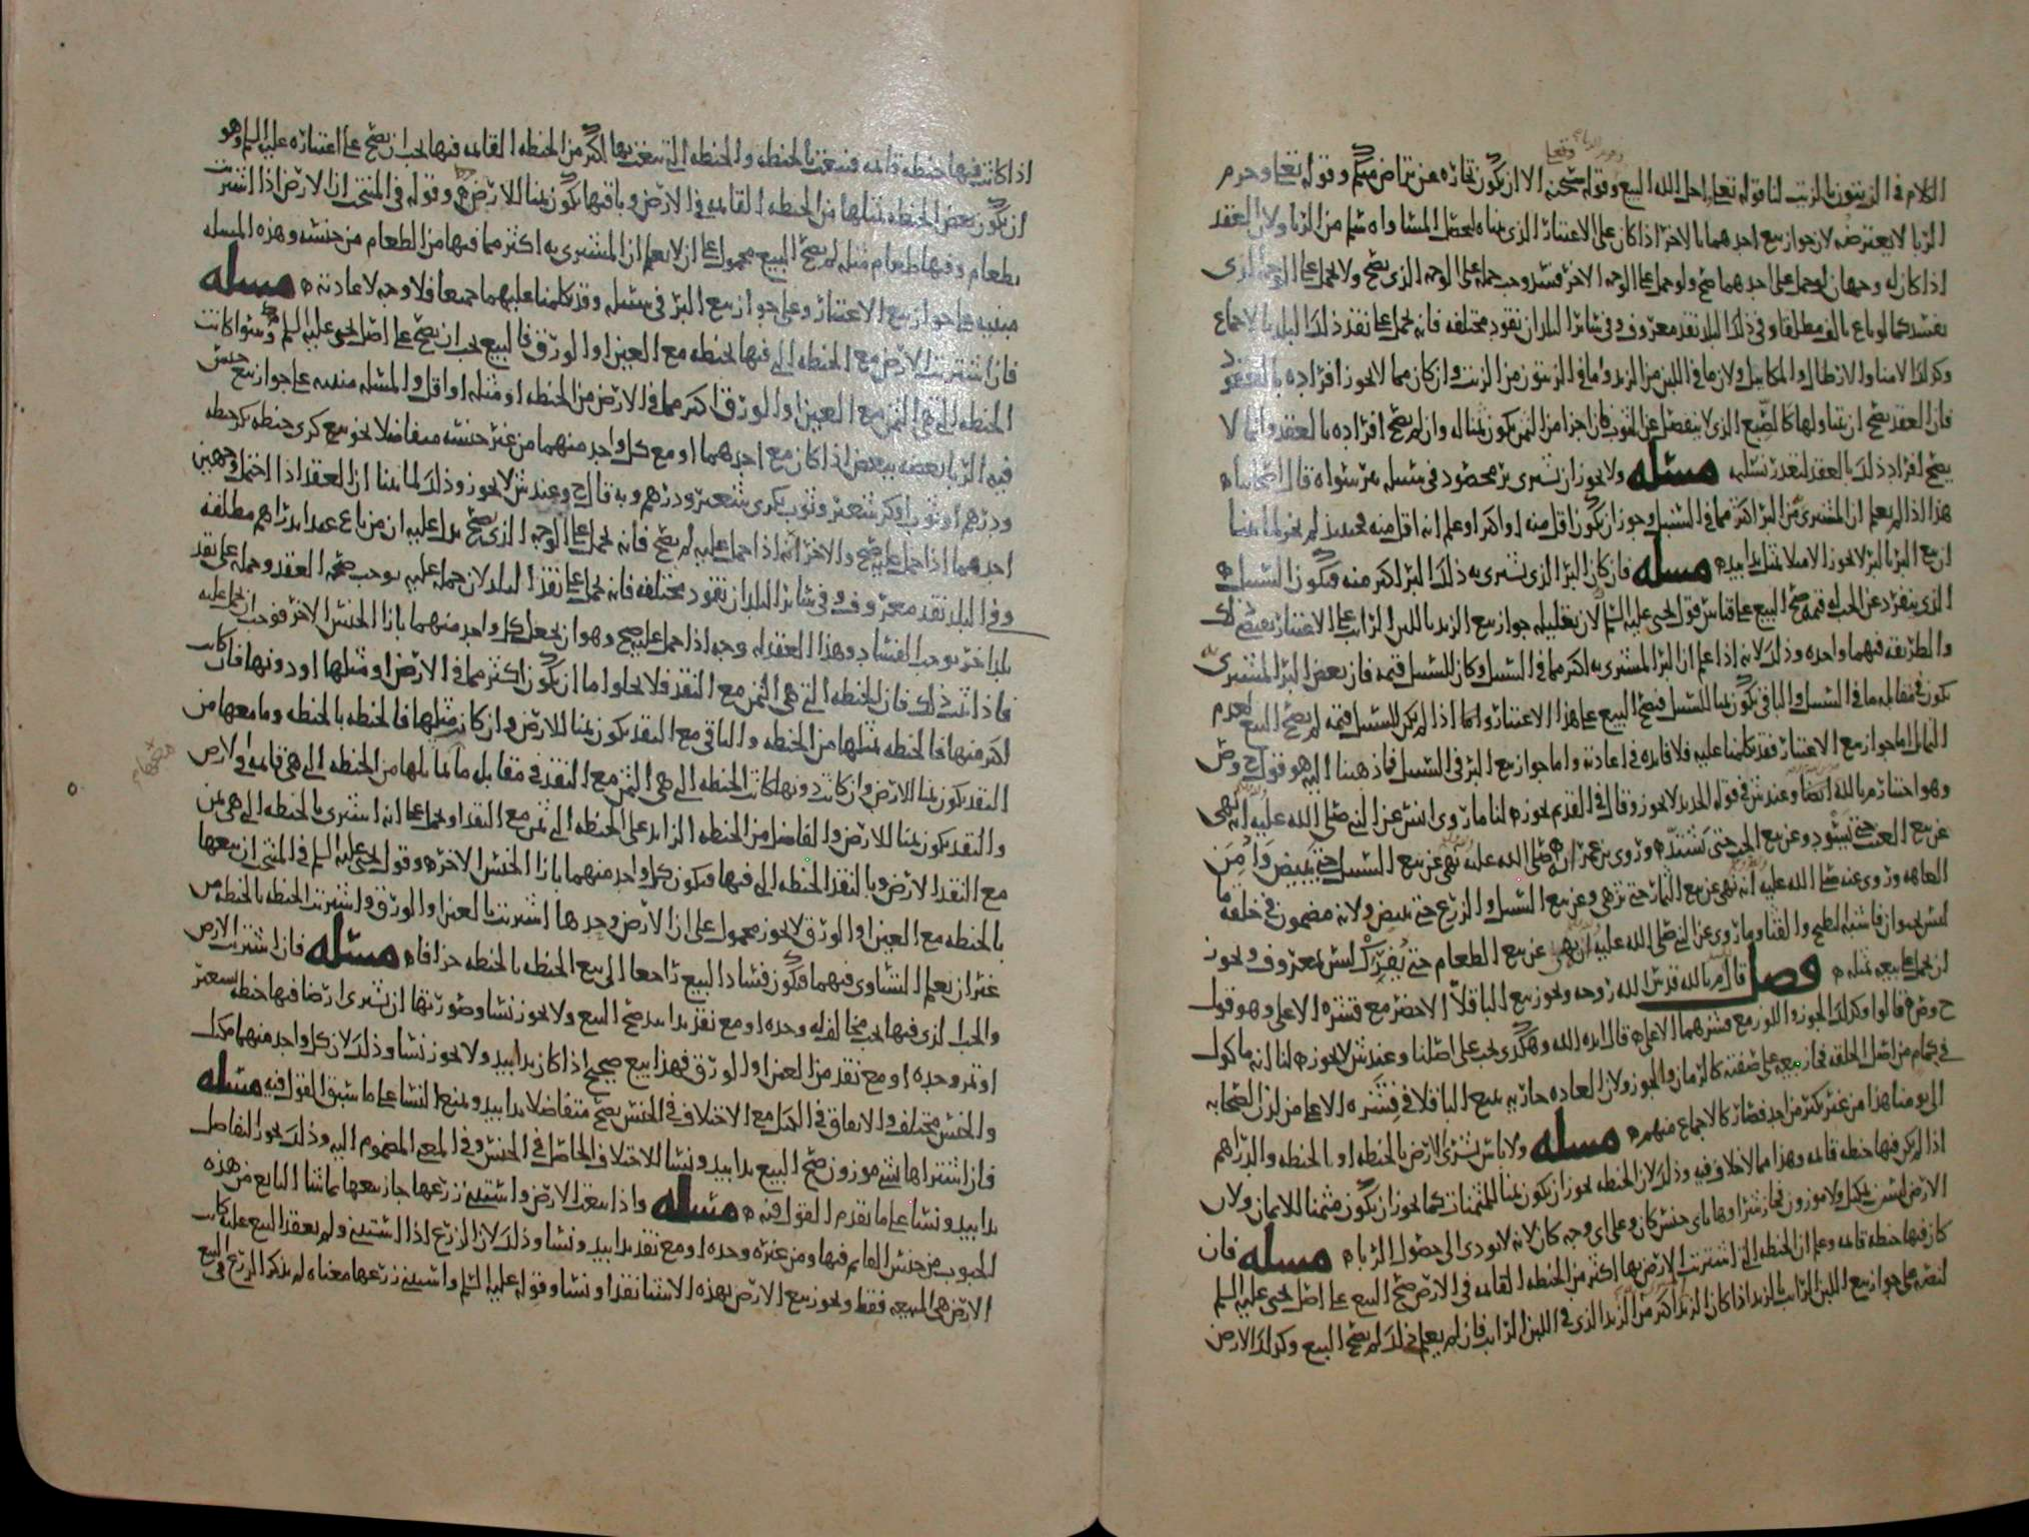 الكلام في الزيتون بالزيت لنا قوله تعلى احل الله البيع وقوله سبحنه الا ان تكون تجارة عن تراض منكم وقوله تعلى وحرم
الربا لا يعترضه لان جواز بيع احدهما بالاخر اذا كان على الاعتبار الذي بيناه لحصل المساواه سلم من الربا ولان العقد
اذا كان له وجهان لو حمل على احدهما صح ولو حمل على الوجه الاخر فسد وجب حمله على الوجه الذي يصح ولا يحمل على الوجه الذي
يفسد كما لو باع بالف مطلقا وفي ذلك البلد نقد معروف وفي سائر البلدان نقود مختلفه فانه يحمل على نقد ذلك البلد بالاجماع
وكذلك الامنا والارطال والمكاييل ولان ما في اللبن من الزبد وما في الزيتون من الزيت وان كان مما لا يجوز افراده بالعقود
فان العقد يصح ان يتناولها كالصبغ الذي لا ينفصل عن الثوب فان اجزا من الثمن يكون ثمنا له وان لم يصح افراده بالعقد وانما لا
يصح افراد ذلك بالعقد لتعذر تسليمه مسئله ولا يجوز ان يشترى بر محصود في سنبله ببر سواه قال اصحابنا
هذا اذا لم يعلم ان المشترى من البر اكثر مما في السنبل وجوز ان يكون اقل منه او اكثر او علم انه اقل منه فحينئذ لم يجز لما بينا
ان بيع البر بالبر لا يجوز الا مثلا بمثل يدا بيد مسئله فان كان البر الذي يشترى به ذلك البر اكثر منه فيكون السنبل
الذي ينفرد عن الحب له قيمه صح البيع على قياس قول يحيى عليه السلم لان تعليله جواز بيع الزبد باللبن الرائب على الاعتبار يقتضي ذلك
والطريقه فيهما واحده وذلك لانه اذا علم ان البر المشترى به اكثر مما في السنبل وكان للسنبل قيمه فان بعض البر المشترى
يكون في مقابله ما في السنبل والباقي يكون ثمنا للسنبل فيصح البيع على هذا الاعتبار وانما اذا لم يكن للسنبل قيمه لم يصح البيع لعدم
التماثل اما جواز بيع الاعتبار فقد تكلمنا عليه فلا فائده في اعادته واما جواز بيع البر في السنبل فما ذهبنا اليه هو قول ح وص
وهو اختيار م بالله ايضا وعند ش في قوله الجديد لا يجوز وقال في القديم يجوز لنا ما روى انس عن النبي صلى الله عليه انه نهى
عن بيع العنب حتى يسود وعن بيع الحب حتى يشتد وروى بن عمر انه صلى الله عليه نهى عن بيع السنبل حتى يبيض وامن
العاهه وروى عنه صلى الله عليه انه نهى عن بيع الثمار حتى تزهى وعن بيع السنبل والزرع حتى يبيض ولانه مضمون في خلقه ما
ليس بحيوان فاشبه البطيخ والقثا وما روى عن النبي صلى الله عليه انه نهى عن بيع الطعام حتى يفرك ليس بمعروف ويجوز
ان يحمل على بيعه بمثله فصل قال م بالله قدس الله روحه ويجوز بيع الباقلا الاخضر مع قشره الاعلى وهو قول
ح وص قالوا وكذلك الجوز واللوز مع قشرهما الاعلى قال ايده الله وهكذى يجب على اصلنا وعند ش لا يجوز لنا انه ماكول
في كمام من اصل الخلقه فجاز بيعه على صفته كالرمان والجوز ولان العاده جاريه ببيع الباقلا في قشره الاعلى من لدن الصحابه
الى يومنا هذا من غير نكير من احد فصار كالاجماع منهم مسئله ولا باس بشرى الارض بالحنطه او بالحنطه والدراهم
اذا لم يكن فيها حنطه قائمه وهذا مما لا خلاف فيه وذلك لان الحنطه يجوز ان يكون ثمنا للمثمنات كما يجوز ان يكون مثمنا للاثمان ولان
الارض ليست بمكيل ولا موزون فجاز شراوها باي جنس كان وعلى اي وجه كان لانه لا يودى الى حصول الربا مسئله فان
كان فيها حنطه قائمه وعلم ان الحنطه التي اشتريت الارض بها اكثر من الحنطه القائمه في الارض صح البيع على اصل يحيى عليه السلم
لنصه على جواز بيع اللبن الرائب بالزبد اذا كان الزبد اكثر من الزبد الذي في اللبن الرائب فان لم يعلم ذلك لم يصح البيع وكذلك الارض
اذا كانت فيها حنطه قائمه فبيعت بالحنطه والحنطه التي بيعت بها اكثر من الحنطه القائمه فيها يجب ان يصح على اعتباره عليه السلم وهو
ان يكون بعض الحنطه بمثلها من الحنطه القائمه في الارض وباقيها يكون ثمنا للارض وقوله في المنتخب ان الارض اذا اشتريت
بطعام وفيها طعام مثله لم يصح البيع محمول على ان لا يعلم ان المشترى به اكثر مما فيها من الطعام من جنسه وهذه المسله
مبنيه على جواز بيع الاعتبار وعلى جواز بيع البر في سنبله وقد تكلمنا عليهما جميعا فلا وجه لاعادته مسئله
فان اشتريت الارض مع الحنطه التي فيها بالحنطه مع العين او الورق فالبيع يجب ان يصح على اصل يحيى عليه السلم وسوا كانت
الحنطه التي هي الثمن مع العين او الورق اكثر مما في الارض من الحنطه او مثله او اقل والمسئله مبنيه على جواز بيع جنس
فيه الربا بعضه ببعض اذا كان مع احدهما او مع كل واحد منهما من غير جنسه متفاضلا نحو بيع كرى حنطه بكر حنطه
ودرهم او ثوب او كر شعير وثوب بكرى شعير ودرهم وبه قال ح وعند ش لا يجوز وذلك لما بينا ان العقد اذا احتمل وجهين
احدهما اذا حمل عليه صح والاخر انه اذا حمل عليه لم يصح فانه يحمل على الوجه الذي يصح يدل عليه ان من باع عبدا بدراهم مطلقه
وفي البلد نقد معروف وفي سائر البلدان نقود مختلفه فانه يحمل على نقد البلد لان حمله عليه يوجب صحه العقد وحمله على نقد
بلد اخر يوجب الفساد وهذا العقد له وجه اذا حمل عليه صح وهو ان يجعل كل واحد منهما بازا الجنس الاخر فوجب ان يحمل عليه
فاذا ثبت ذلك فان الحنطه التي هي الثمن مع النقد فلا يخلوا اما ان يكون اكثر مما في الارض او مثلها او دونها فان كانت
اكثر منها فالحنطه بمثلها من الحنطه والباقي مع النقد يكون ثمنا للارض وان كان مثلها فالحنطه بالحنطه وما معها من
النقد يكون ثمنا للارض وان كانت دونها كانت الحنطه التي هي الثمن مع النقد في مقابل ما يماثلها من الحنطه التي هي قائمه في الارض
والنقد يكون ثمنا للارض والفاضل من الحنطه الزائد على الحنطه التي ثمن مع النقد او يحمل على انه اشترى بالحنطه التي هي ثمن
مع النقد الارض وبالنقد الحنطه التي فيها فيكون كل واحد منهما بازا الجنس الاخر وقول يحيى عليه السلم في المنتخب ان بيعها
بالحنطه مع العين او الورق لا يجوز محمول على ان الارض وحدها اشتريت بالعين او الورق واشتريت الحنطه بالحنطه من
غير ان يعلم التساوى فيهما فيكون فساد البيع راجعا الى بيع الحنطه بالحنطه جزافا مسئله فان اشتريت الارض
والحب الذي فيها بحب مخالف له وحده او مع نقد يدا بيد صح البيع ولا يجوز نسا وصورتها ان يشترى ارضا فيها حنطه بشعير
او تمر وحده او مع نقد من العين او الورق فهذا بيع صحيح اذا كان يدا بيد ولا يجوز نسا وذلك لان كل واحد منهما مكيل
والجنس مختلف والاتفاق في الكيل مع الاختلاف في الجنس يصح متفاضلا يدا بيد ويمنع النسا على ما سبق القول فيه مسئله
فان اشتراها بشي موزون صح البيع يدا بيد ونسا للاختلاف الحاصل في الجنس وفي المعنى المضموم اليه وذلك يجوز التفاضل
يدا بيد ونسا على ما تقدم القول فيه مسئله واذا بيعت الارض واستثنى زرعها جاز بيعها بما شا البائع من هذه
الحبوب من جنس القائم فيها ومن غيره وحده او مع نقد يدا بيد ونسا وذلك لان الزرع اذا استثنى ولم يعقد البيع عليه كانت
الارض هي المبيعه فقط ويجوز بيع الارض بهذه الاشيا نقدا ونسا وقوله عليه السلم واستثنى زرعها معناه لم يذكر الزرع في البيع